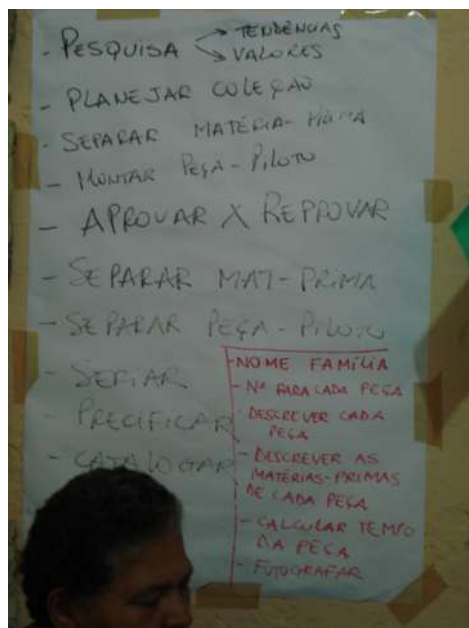 - PESQUISA → TENDÊNCIAS
→ VALORES
- PLANEJAR COLEÇÃO
- SEPARAR MATÉRIA-PRIMA
- MONTAR PEÇA-PILOTO
- APROVAR X REPROVAR
- SEPARAR MAT-PRIMA
- SEPARAR PEÇA-PILOTO
- SERIAR
- PRECIFICAR
- CATALOGAR
- NOME FAMÍLIA
- Nº PARA CADA PEÇA
- DESCREVER CADA
PEÇA
- DESCREVER AS
MATÉRIAS-PRIMAS
DE CADA PEÇA
- CALCULAR TEMPO
DA PEÇA
- FOTOGRAFAR